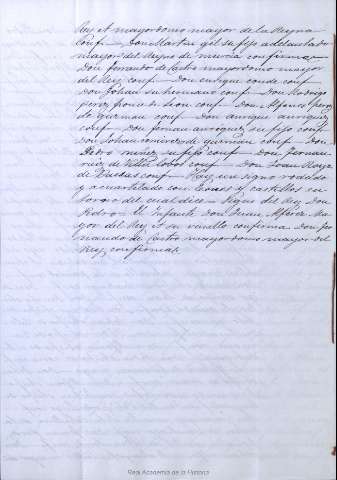 Rey et mayordomo mayor de la Reyna
Conf — Don Martin gil su fijo adelantado
mayor del Reyno de murcia confirma —
Don ferrando de Castro mayordomo mayor
del Rey conf — Don enrique conde conf
Don Johan su hermano conf — Don Rodrigo
perez ponce de leon conf — Don Alfonso perez
de guzman conf — Don anrique anriquez
conf — Don fernan anriquez su fijo conf
Don Johan ramirez de guzman conf — Don
Pedro nuñez su fijo conf — Don Fernan
ruiz de Villa lobos conf — Don Juan Alfonso
de — conf — Hay un signo rodado
y acuartelado con leones y castillos en
torno del cual dice — Signo del Rey Don
Pedro — El Infante Don Juan Alferez Ma-
yor del Rey et su vasallo confirma Don fer
nando de Castro mayordomo mayor del
Rey, confirma
Real Academia de la Historia